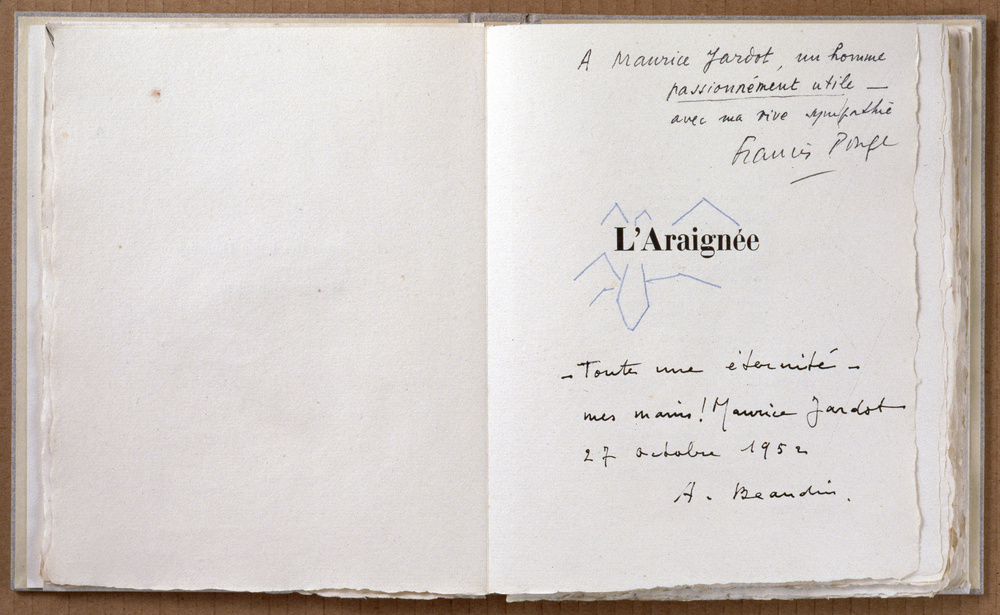 A Maurice Jardot, un homme
passionnément utile —
avec ma vive sympathie
Francis Ponge
L'Araignée
— Toute une éternité —
mes mains! Maurice Jardot
27 octobre 1952
A. Beaudin.